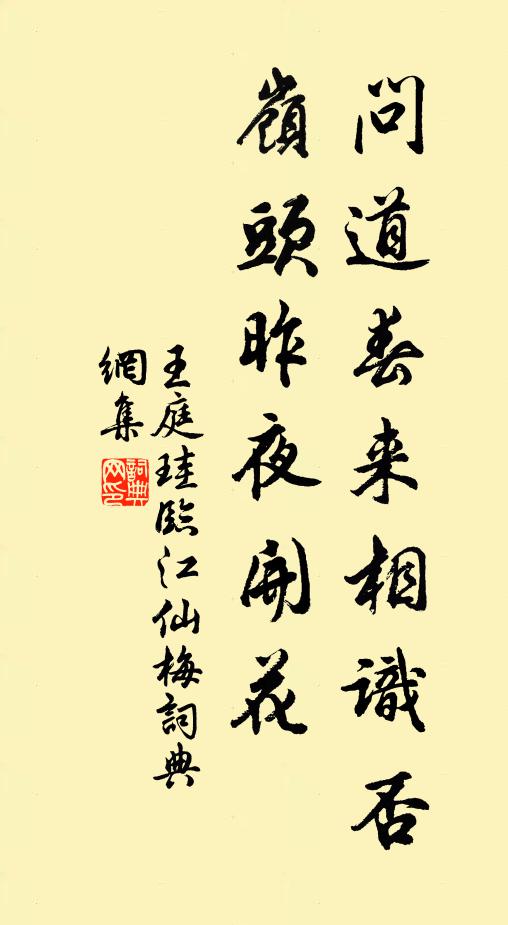 問道春来相識否
嶺頭昨夜開花
王庭珪臨江仙梅詞典
網集
詞典網印